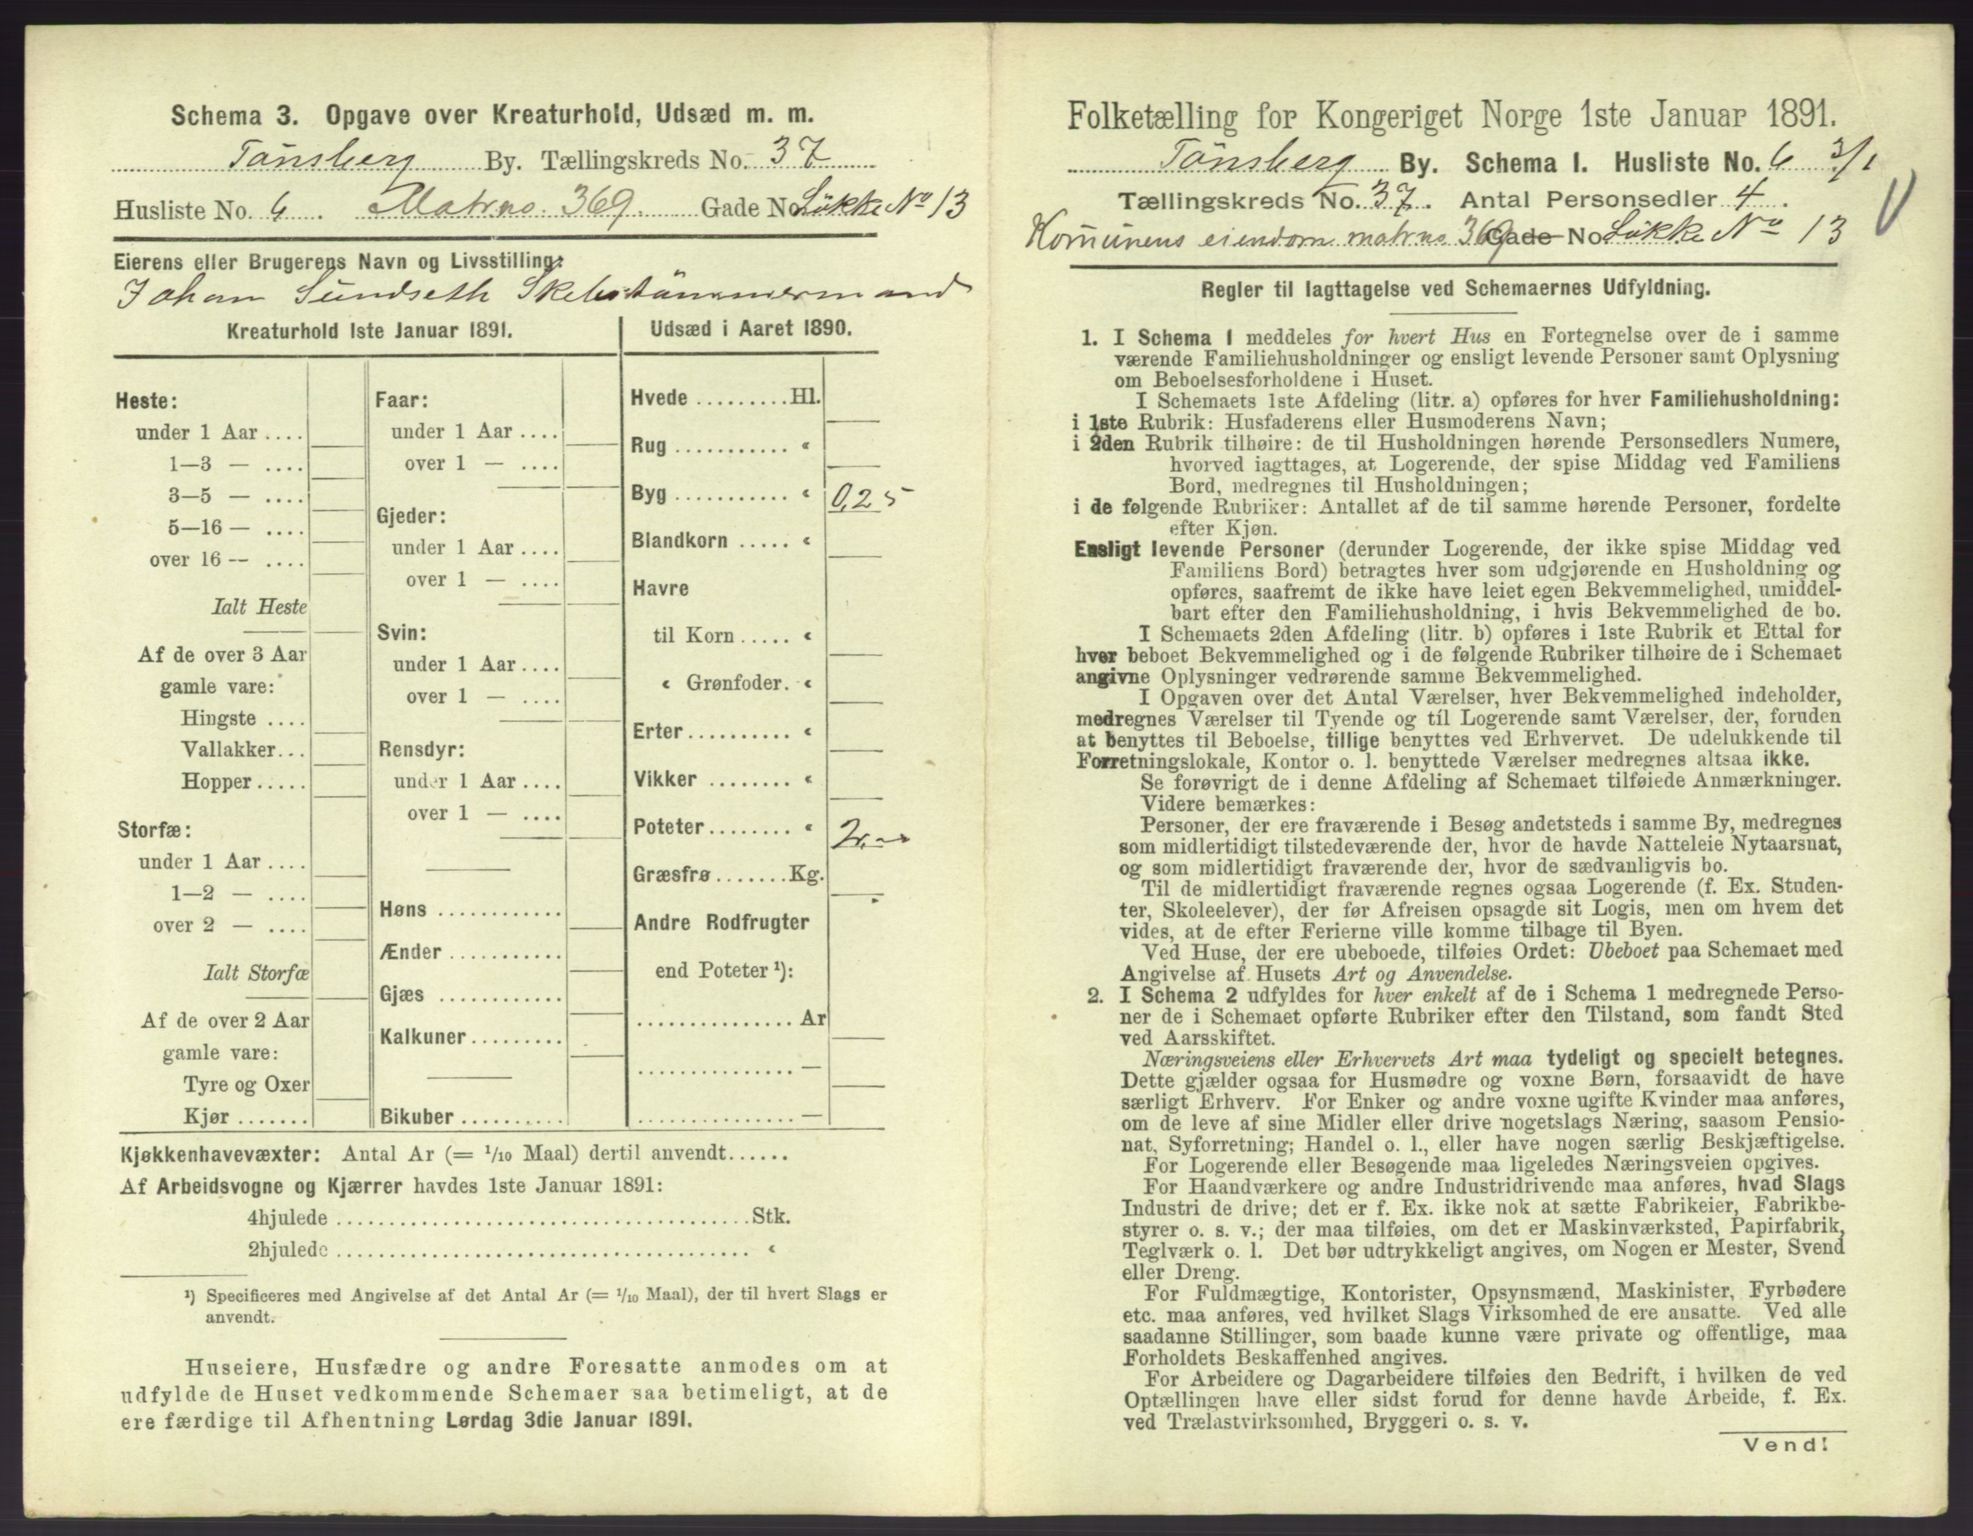 Schema 3. Opgave over Kreaturhold, Udsæd m. m.
Tönsberg By. Tællingskreds No. 37
Husliste No. 6. Matrno. 369. Gade No Løkke No 13
Eierens eller Brugerens Navn og Livsstilling:
Johan Sundseth Skibstömmermand
Kreaturhold 1ste Januar 1891.
Heste:
under 1 Aar ....
1—3 — ....
3—5 — ....
5—16 — ....
over 16 — ....
Ialt Heste
Af de over 3 Aar
gamle vare:
Hingste ....
Vallakker...
Hopper.....
Storfæ:
under 1 Aar ....
1—2 — ....
over 2 — ....
Ialt Storfæ
Af de over 2 Aar
gamle vare:
Tyre og Oxer
Kjør.......
Faar:
under 1 Aar ....
over 1 — ....
Gjeder:
under 1 Aar ....
over 1 — ....
Svin:
under 1 Aar ....
over 1 — ....
Rensdyr:
under 1 Aar ....
over 1 — ....
Høns ............
Ænder ...........
Gjæs ............
Kalkuner.........
Bikuber ..........
Udsæd i Aaret 1890.
Hvede .........Hl.
Rug ........... «
Byg ........... « 0,25
Blandkorn ..... «
Havre
til Korn ..... «
« Grønfoder. «
Erter.......... «
Vikker ........ «
Poteter........ « 2,—
Græsfrø.......Kg.
Andre Rodfrugter
end Poteter ¹):
...............Ar
...............—
...............—
Kjøkkenhavevæxter: Antal Ar (= 1/10 Maal) dertil anvendt......
Af Arbeidsvogne og Kjærrer havdes 1ste Januar 1891:
4hjulede ........................................Stk.
2hjulede ........................................ «
¹) Specificeres med Angivelse af det Antal Ar (= 1/10 Maal), der til hvert Slags er
anvendt.
Huseiere, Husfædre og andre Foresatte anmodes om at
udfylde de Huset vedkommende Schemaer saa betimeligt, at de
ere færdige til Afhentning Lørdag 3die Januar 1891.
Folketælling for Kongeriget Norge 1ste Januar 1891.
Tönsberg By. Schema 1. Husliste No. 6 3/1
Tællingskreds No. 37. Antal Personsedler 4.
Komunens eiendom matrno 369 Gade No Løkke No 13
Regler til Iagttagelse ved Schemaernes Udfyldning.
1. I Schema 1 meddeles for hvert Hus en Fortegnelse over de i samme
værende Familiehusholdninger og ensligt levende Personer samt Oplysning
om Beboelsesforholdene i Huset.
I Schemaets 1ste Afdeling (litr. a) opføres for hver Familiehusholdning:
i 1ste Rubrik: Husfaderens eller Husmoderens Navn;
i 2den Rubrik tilhøire: de til Husholdningen hørende Personsedlers Numere,
hvorved iagttages, at Logerende, der spise Middag ved Familiens
Bord, medregnes til Husholdningen;
i de følgende Rubriker: Antallet af de til samme hørende Personer, fordelte
efter Kjøn.
Ensligt levende Personer (derunder Logerende, der ikke spise Middag ved
Familiens Bord) betragtes hver som udgjørende en Husholdning og
opføres, saafremt de ikke have leiet egen Bekvemmelighed, umiddel-
bart efter den Familiehusholdning, i hvis Bekvemmelighed de bo.
I Schemaets 2den Afdeling (litr. b) opføres i 1ste Rubrik et Ettal for
hver beboet Bekvemmelighed og i de følgende Rubriker tilhøire de i Schemaet
angivne Oplysninger vedrørende samme Bekvemmelighed.
I Opgaven over det Antal Værelser, hver Bekvemmelighed indeholder,
medregnes Værelser til Tyende og til Logerende samt Værelser, der, foruden
at benyttes til Beboelse, tillige benyttes ved Erhvervet. De udelukkende til
Forretningslokale, Kontor o. l. benyttede Værelser medregnes altsaa ikke.
Se forøvrigt de i denne Afdeling af Schemaet tilføiede Anmærkninger.
Videre bemærkes:
Personer, der ere fraværende i Besøg andetsteds i samme By, medregnes
som midlertidigt tilstedeværende der, hvor de havde Natteleie Nytaarsnat,
og som midlertidigt fraværende der, hvor de sædvanligvis bo.
Til de midlertidigt fraværende regnes ogsaa Logerende (f. Ex. Studen-
ter, Skoleelever), der før Afreisen opsagde sit Logis, men om hvem det
vides, at de efter Ferierne ville komme tilbage til Byen.
Ved Huse, der ere ubeboede, tilføies Ordet: Ubeboet paa Schemaet med
Angivelse af Husets Art og Anvendelse.
2. I Schema 2 udfyldes for hver enkelt af de i Schema 1 medregnede Perso-
ner de i Schemaet opførte Rubriker efter den Tilstand, som fandt Sted
ved Aarsskiftet.
Næringsveiens eller Erhvervets Art maa tydeligt og specielt betegnes.
Dette gjælder ogsaa for Husmødre og voxne Børn, forsaavidt de have
særligt Erhverv. For Enker og andre voxne ugifte Kvinder maa anføres,
om de leve af sine Midler eller drive nogetslags Næring, saasom Pensio-
nat, Syforretning; Handel o. l., eller have nogen særlig Beskjæftigelse.
For Logerende eller Besøgende maa ligeledes Næringsveien opgives.
For Haandværkere og andre Industridrivende maa anføres, hvad Slags
Industri de drive; det er f. Ex. ikke nok at sætte Fabrikeier, Fabrikbe-
styrer o. s. v.; der maa tilføies, om det er Maskinværksted, Papirfabrik,
Teglværk o. l. Det bør udtrykkeligt angives, om Nogen er Mester, Svend
eller Dreng.
For Fuldmægtige, Kontorister, Opsynsmænd, Maskinister, Fyrbødere
etc. maa anføres, ved hvilket Slags Virksomhed de ere ansatte. Ved alle
saadanne Stillinger, som baade kunne være private og offentlige, maa
Forholdets Beskaffenhed angives.
For Arbeidere og Dagarbeidere tilføies den Bedrift, i hvilken de ved
Optællingen have eller sidst forud for denne havde Arbeide, f. Ex.
ved Trælastvirksomhed, Bryggeri o. s. v.
Vend!